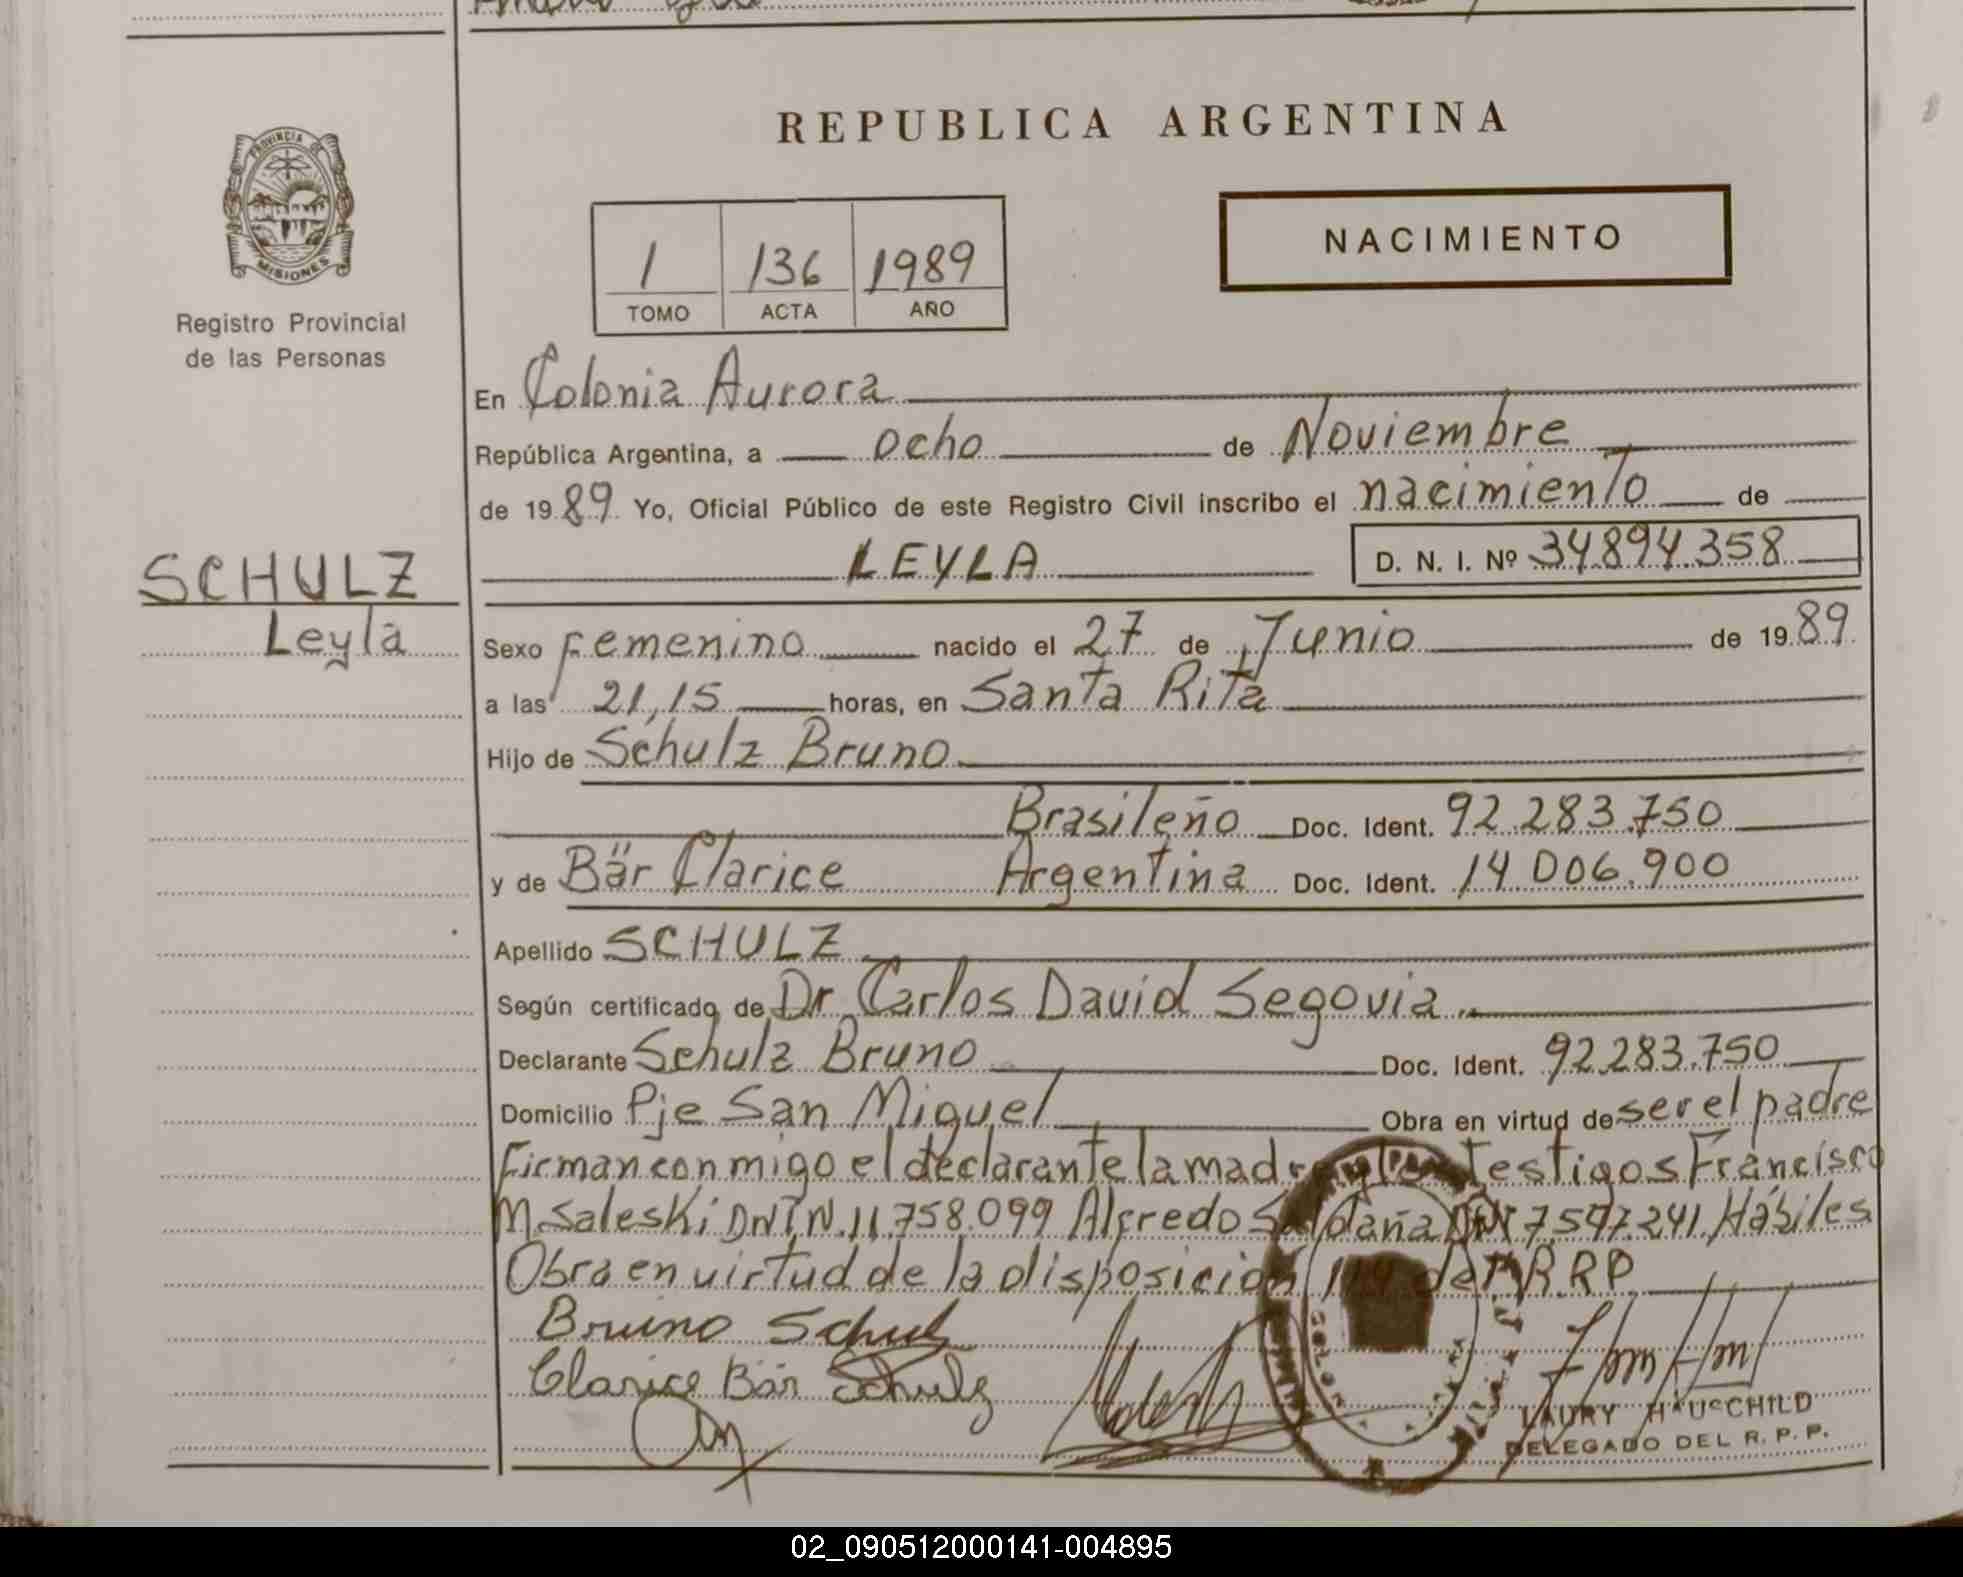 REPUBLICA ARGENTINA
PROVINCIA DE
MISIONES
Registro Provincial
de las Personas
1 136 1989
TOMO ACTA AÑO
NACIMIENTO
En Colonia Aurora
República Argentina, a ocho de Noviembre
de 1989 Yo, Oficial Público de este Registro Civil inscribo el nacimiento de
LEYLA D. N. I. Nº 34894.358
SCHULZ
Leyla
Sexo Femenino nacido el 27 de Junio de 1989.
a las 21,15 horas, en Santa Rita
Hijo de Schulz Bruno
Brasileño Doc. Ident. 92.283.750
y de Bär Clarice Argentina Doc. Ident. 14.006.900
Apellido SCHULZ
Según certificado de Dr Carlos David Segovia
Declarante Schulz Bruno Doc. Ident. 92.283.750
Domicilio Pje San Miguel Obra en virtud de ser el padre
Firman conmigo el declarante la madre y testigos Francisco
M. Saleski DNI N. 11.758.099 Alfredo Saldaña DNI 7.597.241. Hábiles
Obra en virtud de la disposición 114 del R.R.P.
Bruno Schulz
Clarice Bär Schulz
LAURY HAUSCHILD
DELEGADO DEL R. P. P.
02_090512000141-004895